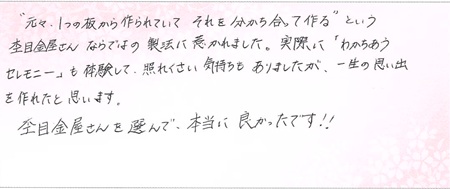 "元々、1つの板から作られていて それを分かち合って作る"という
杢目金屋さん ならではの 製法に惹かれました。実際に「わかちあう
セレモニー」も体験して、照れくさい気持ちも ありましたが、一生の思い出
を作れたと思います。
杢目金屋さんを選んで、本当に 良かったです!!